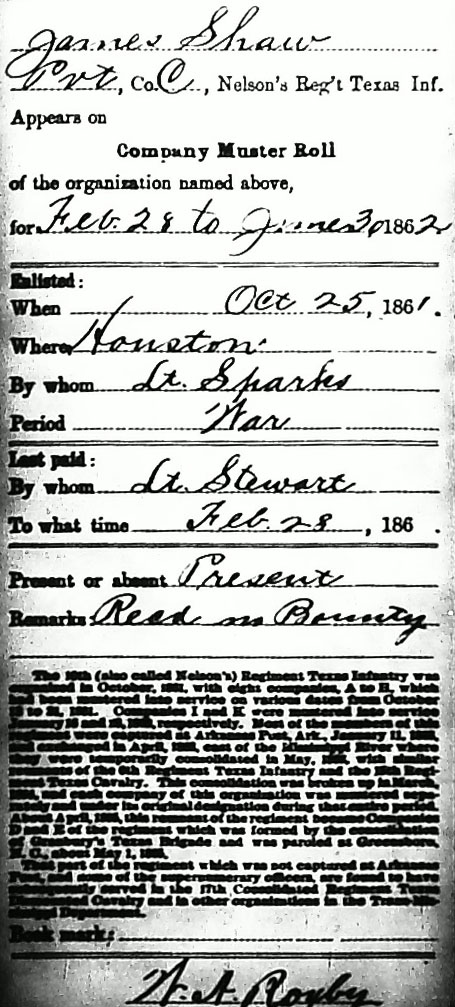 James Shaw
Pvt, Co. C, Nelson's Reg't Texas Inf.
Appears on
Company Muster Roll
of the organization named above,
for Feb. 28 to June 30 1862
Enlisted:
When Oct 25, 1861.
Where Houston
By whom Lt. Sparks
Period War
Last paid:
By whom Lt. Stewart
To what time Feb. 28, 186 .
Present or absent Present
Remarks: Recd no Bounty
The 10th (also called Nelson's) Regiment Texas Infantry was
organized in October, 1861, with eight companies, A to H, which
had been mustered into service on various dates from October
to 31, 1861. Companies I and K were mustered into service
January and 1862, respectively. Most of the members of this
regiment were captured at Arkansas Post, Ark., January 11, 1863,
and exchanged in April, 1863, east of the Mississippi River where
they were temporarily consolidated in May, 1863, with similar
remnants of the 6th Regiment Texas Infantry and the 15th Regi-
ment Texas Cavalry. This consolidation was broken up in March,
1864, and each company of this organization was mustered sepa-
rately and under its original designation during that entire period.
About April, 1865, this remnant of the regiment became Companies
D and E of the regiment which was formed by the consolidation
of Granbury's Texas Brigade and was paroled at Greensboro,
N. C., about May 1, 1865.
That part of the regiment which was not captured at Arkansas
Post, and some of the supernumerary officers, are found to have
subsequently served in the 17th Consolidated Regiment Texas
Dismounted Cavalry and in other organizations in the Trans-Mis-
sissippi Department.
Book mark: